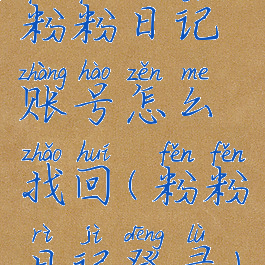 粉粉日记
zhàng hào zěn me
账号怎么
zhǎo huí fěn fěn
找回(粉粉
rì jì dēng lù
日记登录)